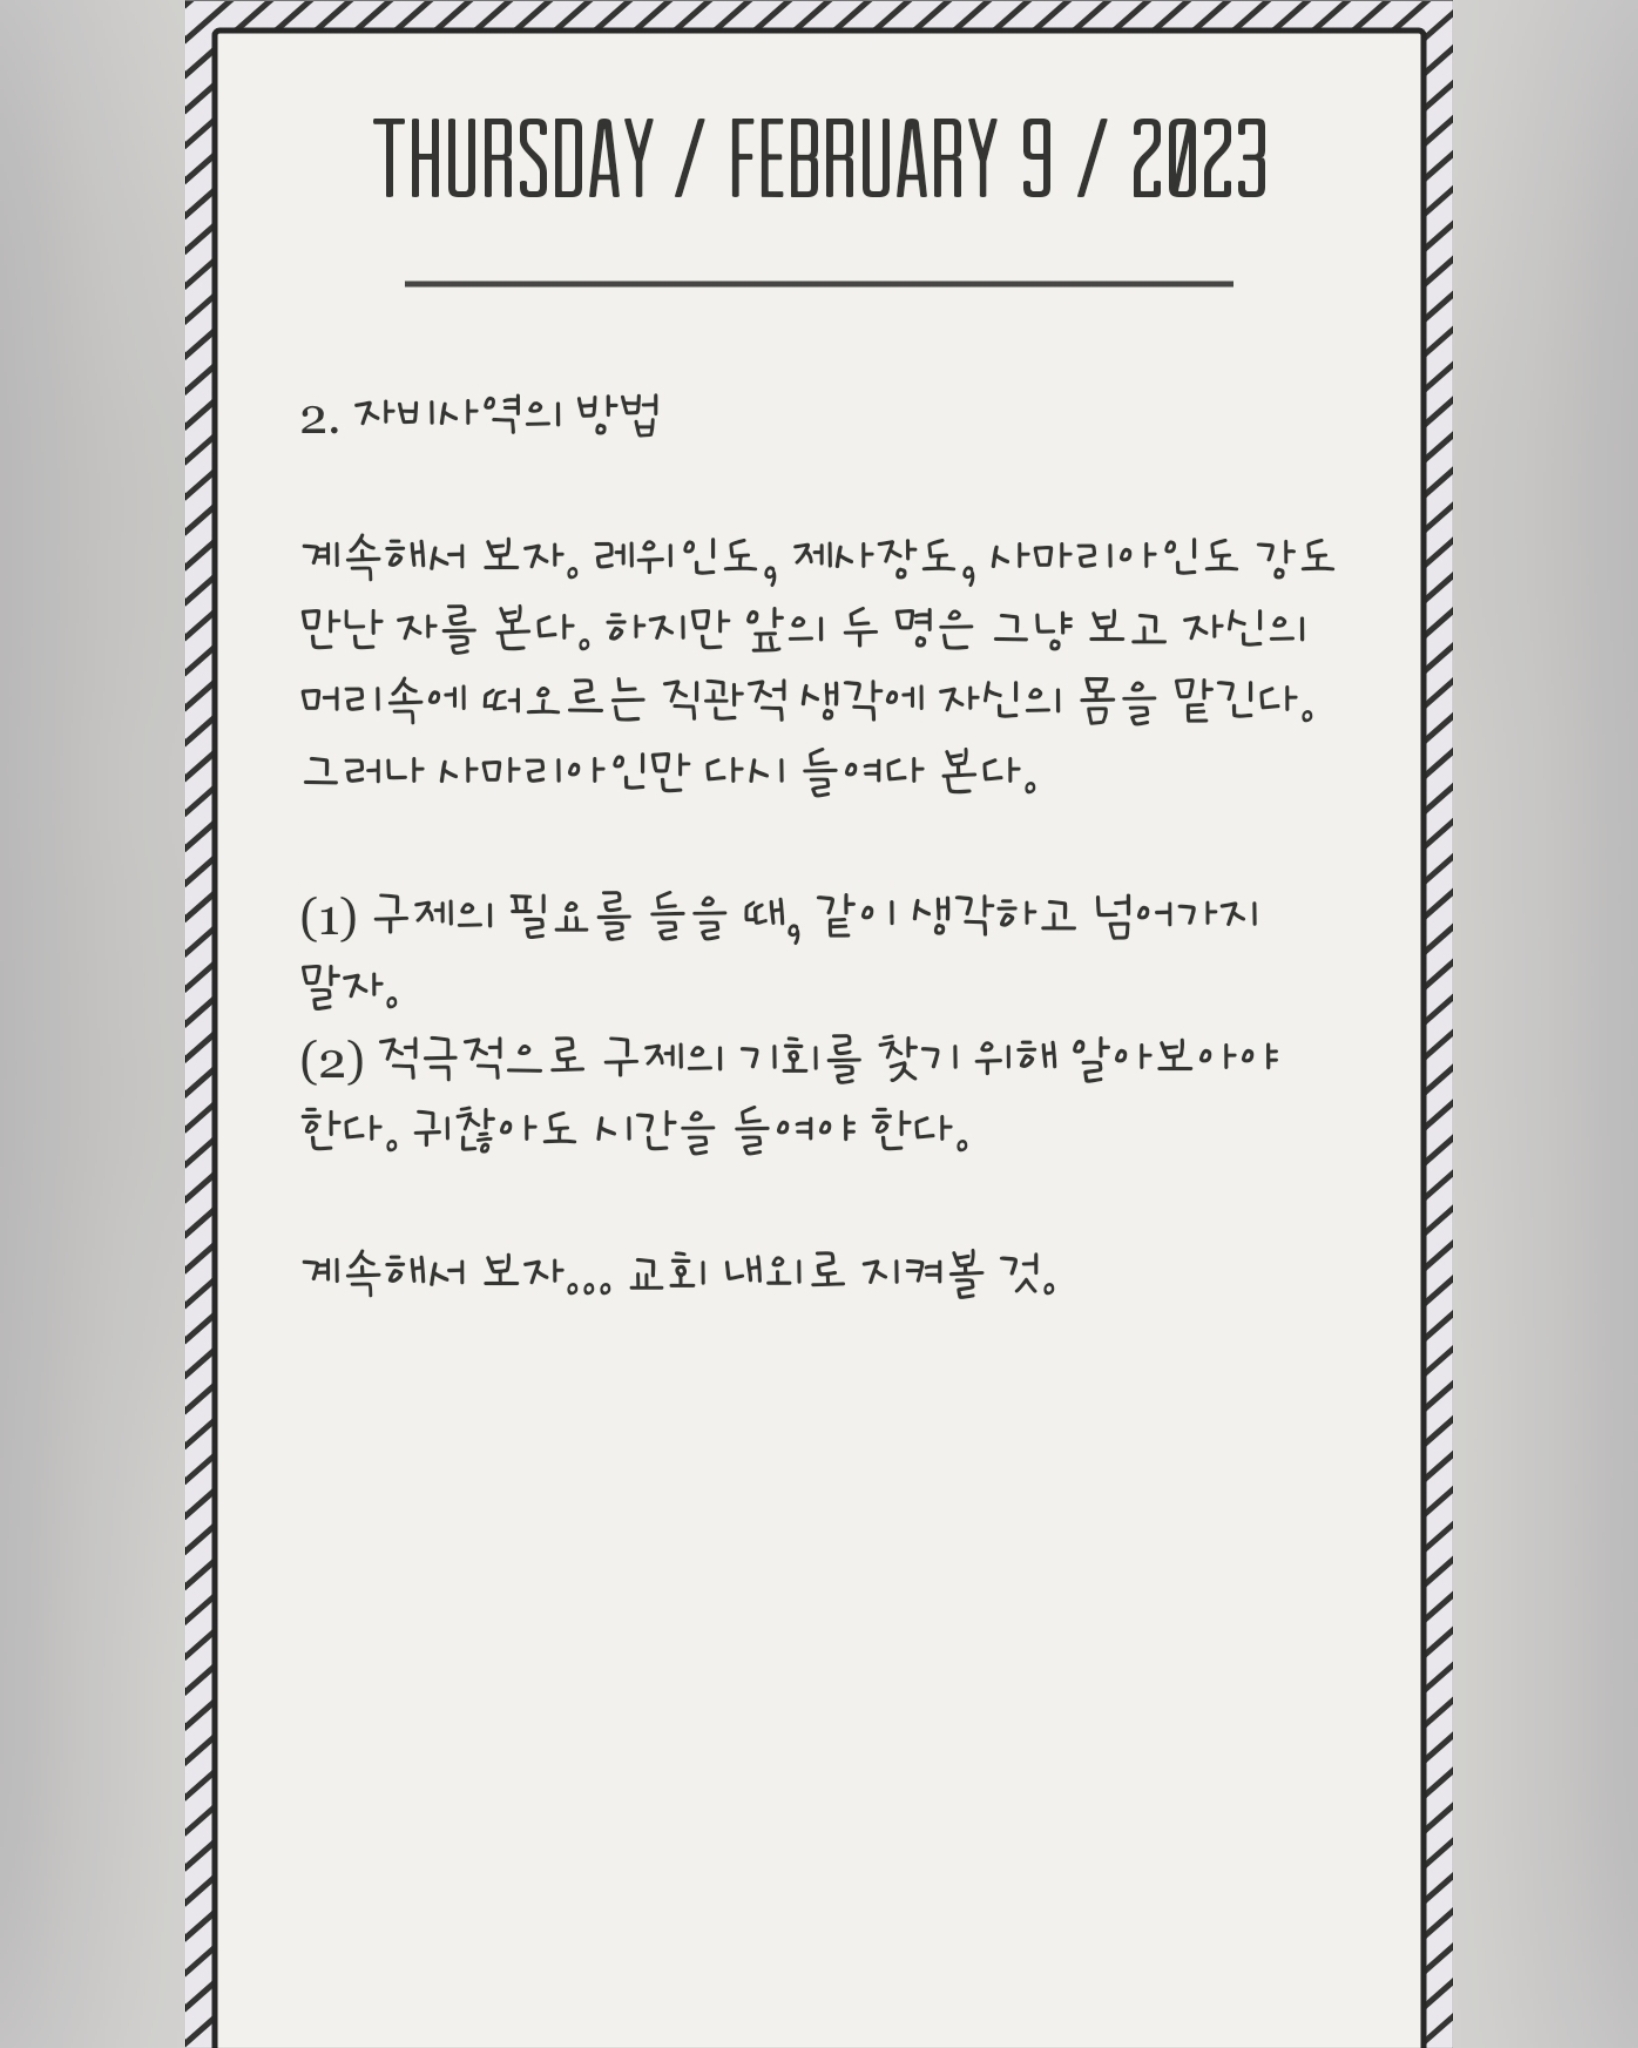 THURSDAY / FEBRUARY 9 / 2023
2. 자비사역의 방법
계속해서 보자. 레위인도, 제사장도, 사마리아인도 강도
만난 자를 본다. 하지만 앞의 두 명은 그냥 보고 자신의
머리속에 떠오르는 직관적 생각에 자신의 몸을 맡긴다.
그러나 사마리아인만 다시 들여다 본다.
(1) 구제의 필요를 들을 때, 같이 생각하고 넘어가지
말자.
(2) 적극적으로 구제의 기회를 찾기 위해 알아보아야
한다. 귀찮아도 시간을 들여야 한다.
계속해서 보자... 교회 내외로 지켜볼 것.